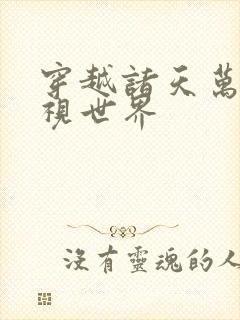 穿越諸天萬
視世界
沒有靈魂的人